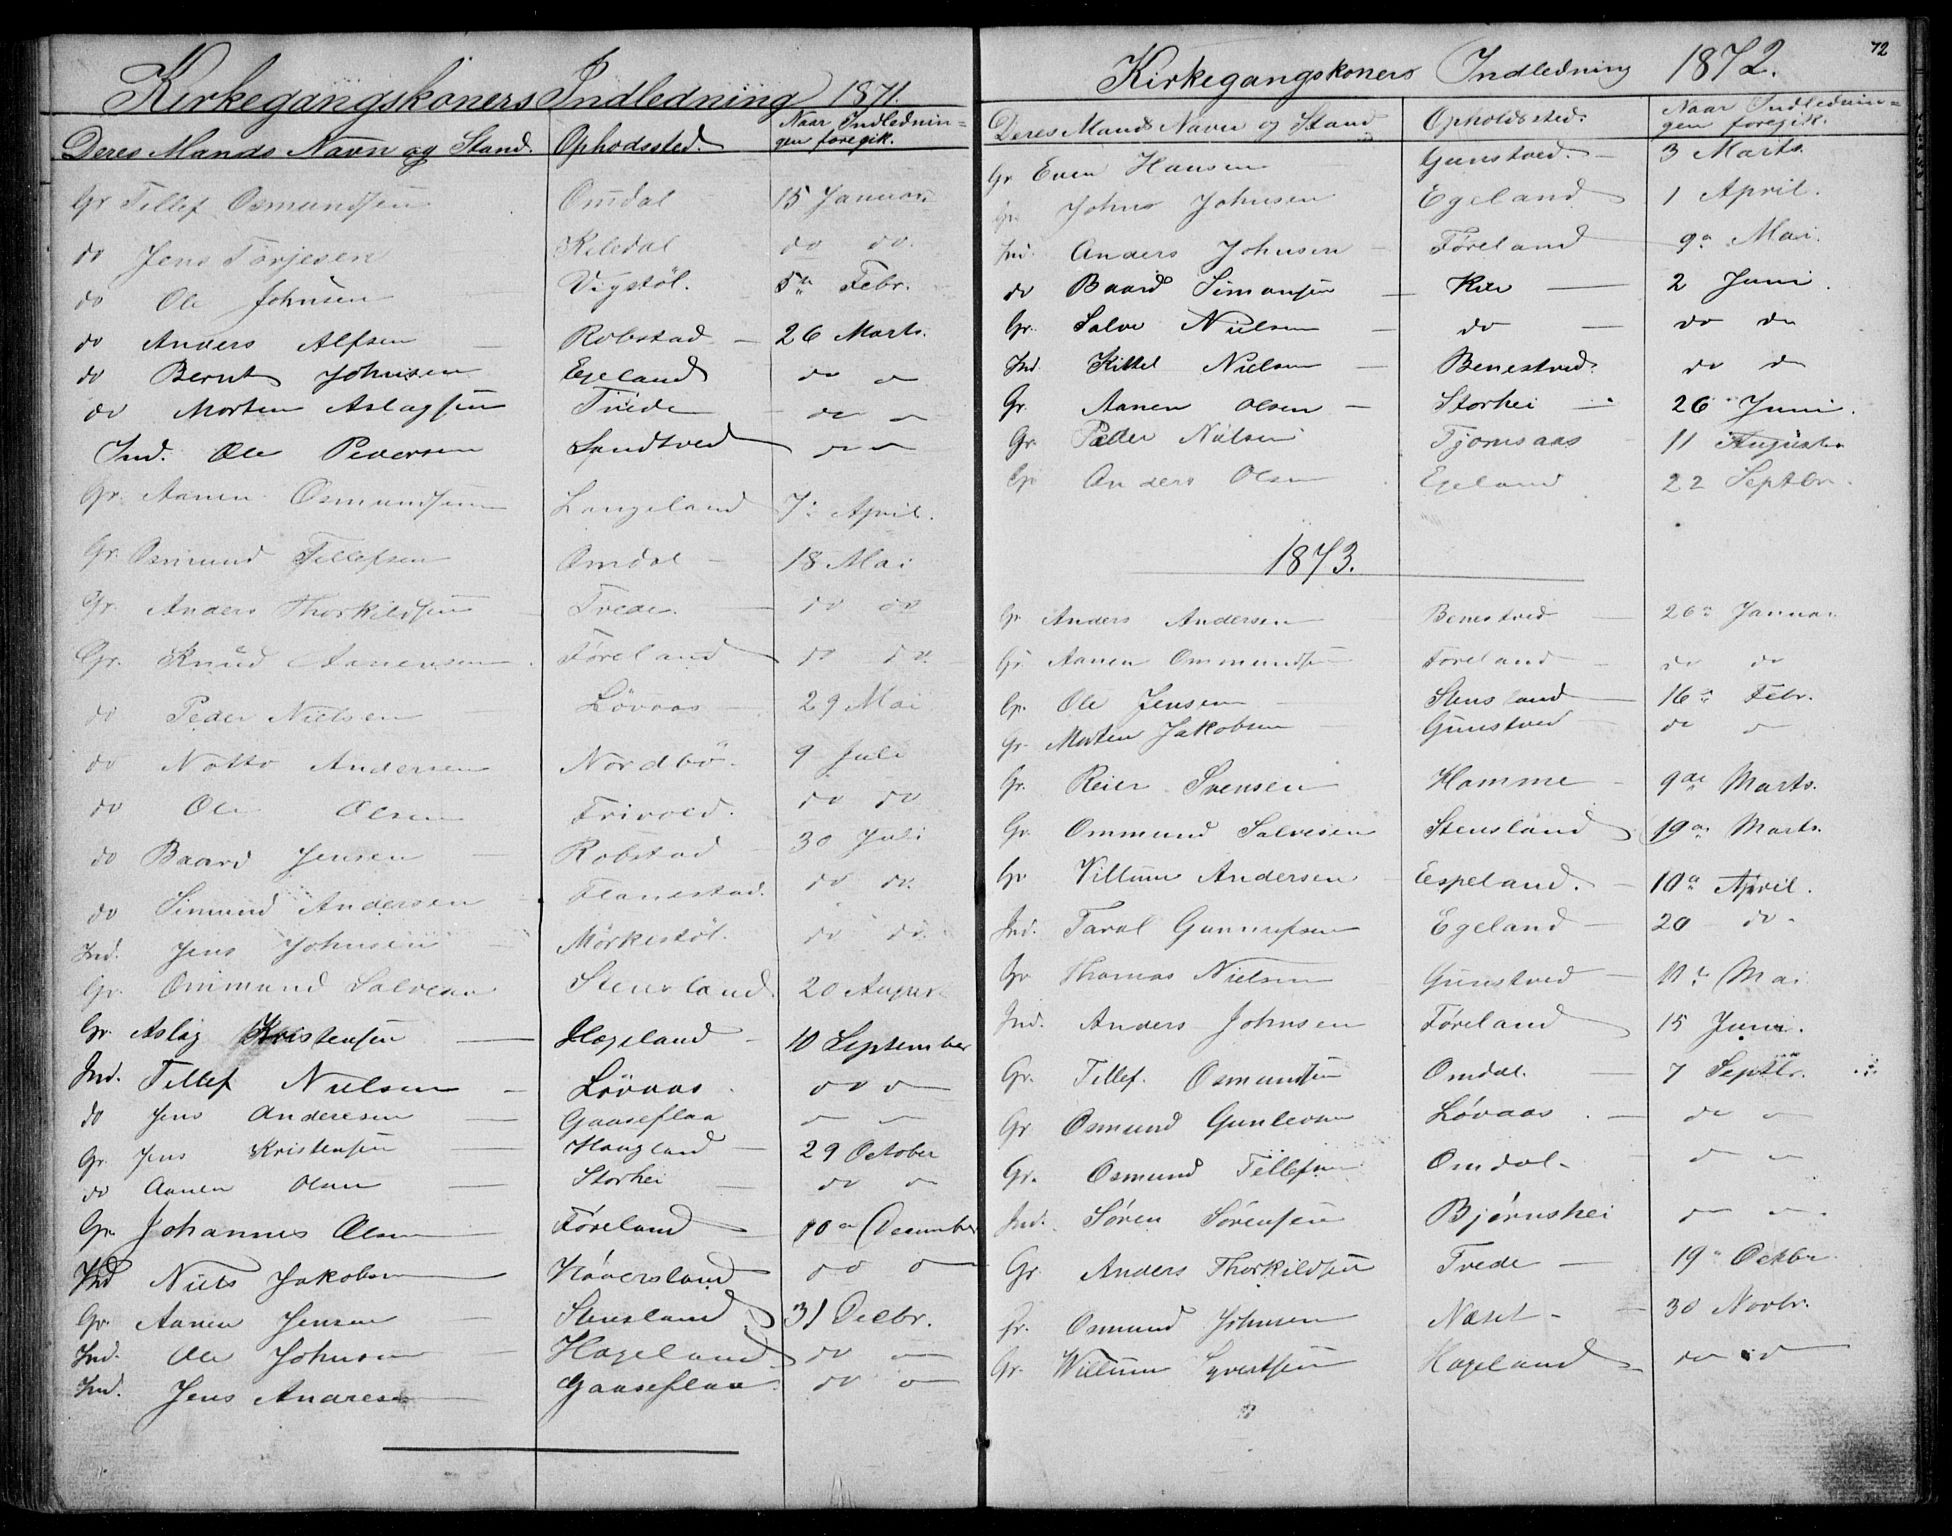 Kirkegangskoners Indledning 1871.
Deres Mands Navn og Stand. Ophodssted. Naar Indlednin=
gen foregik.
Gr Tellef Osmundsen Omdal 15 Januar
do Jens Torjesen Kiledal do do.
do Ole Johnsen Vigstöl. 5te Febr.
do Anders Alfsen Robstad 26 Marts.
do Bernt Johnsen Egeland do do
do Morten Aslagsen Tvede do do
Ind. Ole Pedersen Landtved do do
Gr. Aanen Osmundsen Langeland 7: April.
Gr. Osmund Tellefsen Omdal 18 Mai
Gr. Anders Thorkildsen Tvede. do do
Gr. Knud Aanensen Føreland do do.
do Peder Nielsen Lövaas 29 Mai
do Notto Andersen Nordbö. 9 Juli
do Ole Olsen Frivold. do do
do Baard Jensen Robstad 30 Juli
do Simund Andersen do do.
Ind. Jens Johnsen Mörkestöl. do do.
Gr. Ommund Salvesen Stensland 20 August
Gr. Aslag Kristensen Hægeland 10 September
Ind. Tellef Nielsen Lövaas. do do
do Jens Anderesen Gaaseflaa do do
Gr. Jens Kristensen Haugland 29 October
do Aanen Olsen Storhei do do
Gr. Johannes Olsen Føreland 10de December
Ind Niels Jakobsen Höversland do do
Gr. Aanen Jensen Stensland 31 Decbr.
Ind. Ole Johnsen Hægeland do do
Ind. Jens Andresen Gaaseflaa. do do
72
Kirkegangskoners Indledning 1872.
Deres Mands Navn og Stand Opholdssted. Naar Indlednin=
gen foregik.
Gr Even Hansen Gunstved. 3 Marts.
Gr. Johns Johnsen Egeland 1 April.
Ind. Anders Johnsen Føreland 9de Mai.
do Baard Simonsen Kile 2 Juni.
Gr. Salve Nielsen do do do
Ind. Kittel Nielsen Benestved. do do
Gr. Aanen Olsen Storhei 26 Juni.
Gr. Peder Nielsen Tjomsaas 11 Auguste
Gr. Anders Olsen Egeland 22 Septbr.
1873.
Gr. Anders Andersen Benestved 26de Januar
Gr. Aanen Ommundsen Føreland do do
Gr. Ole Jensen Stensland 16de Febr.
Gr. Morten Jakobsen Gunstved do do
Gr. Reier Svensen Homme 9de Marts.
Gr. Ommund Salvesen Stensland 19de Marts.
Gr Villum Andersen Espeland. 10de April.
Ind. Taral Gunnufsen Egeland 20 do
Gr Thomas Nielsen Gunstved 11te Mai
Ind. Anders Johnsen Føreland 15 Juni.
Gr. Tellef. Osmundsen Omdal. 7 Septbr.
Gr Osmund Gunlevsen Løvaas. do do
Gr. Osmund Tellefsen Omdal. do do
Ind. Søren Sørensen Bjørnshei do do
Gr. Anders Thorkildsen Tvede 19 Octbr
Gr. Osmund Johnsen Næset 30 Novbr.
Gr. Willum Syvertsen Hægeland do do